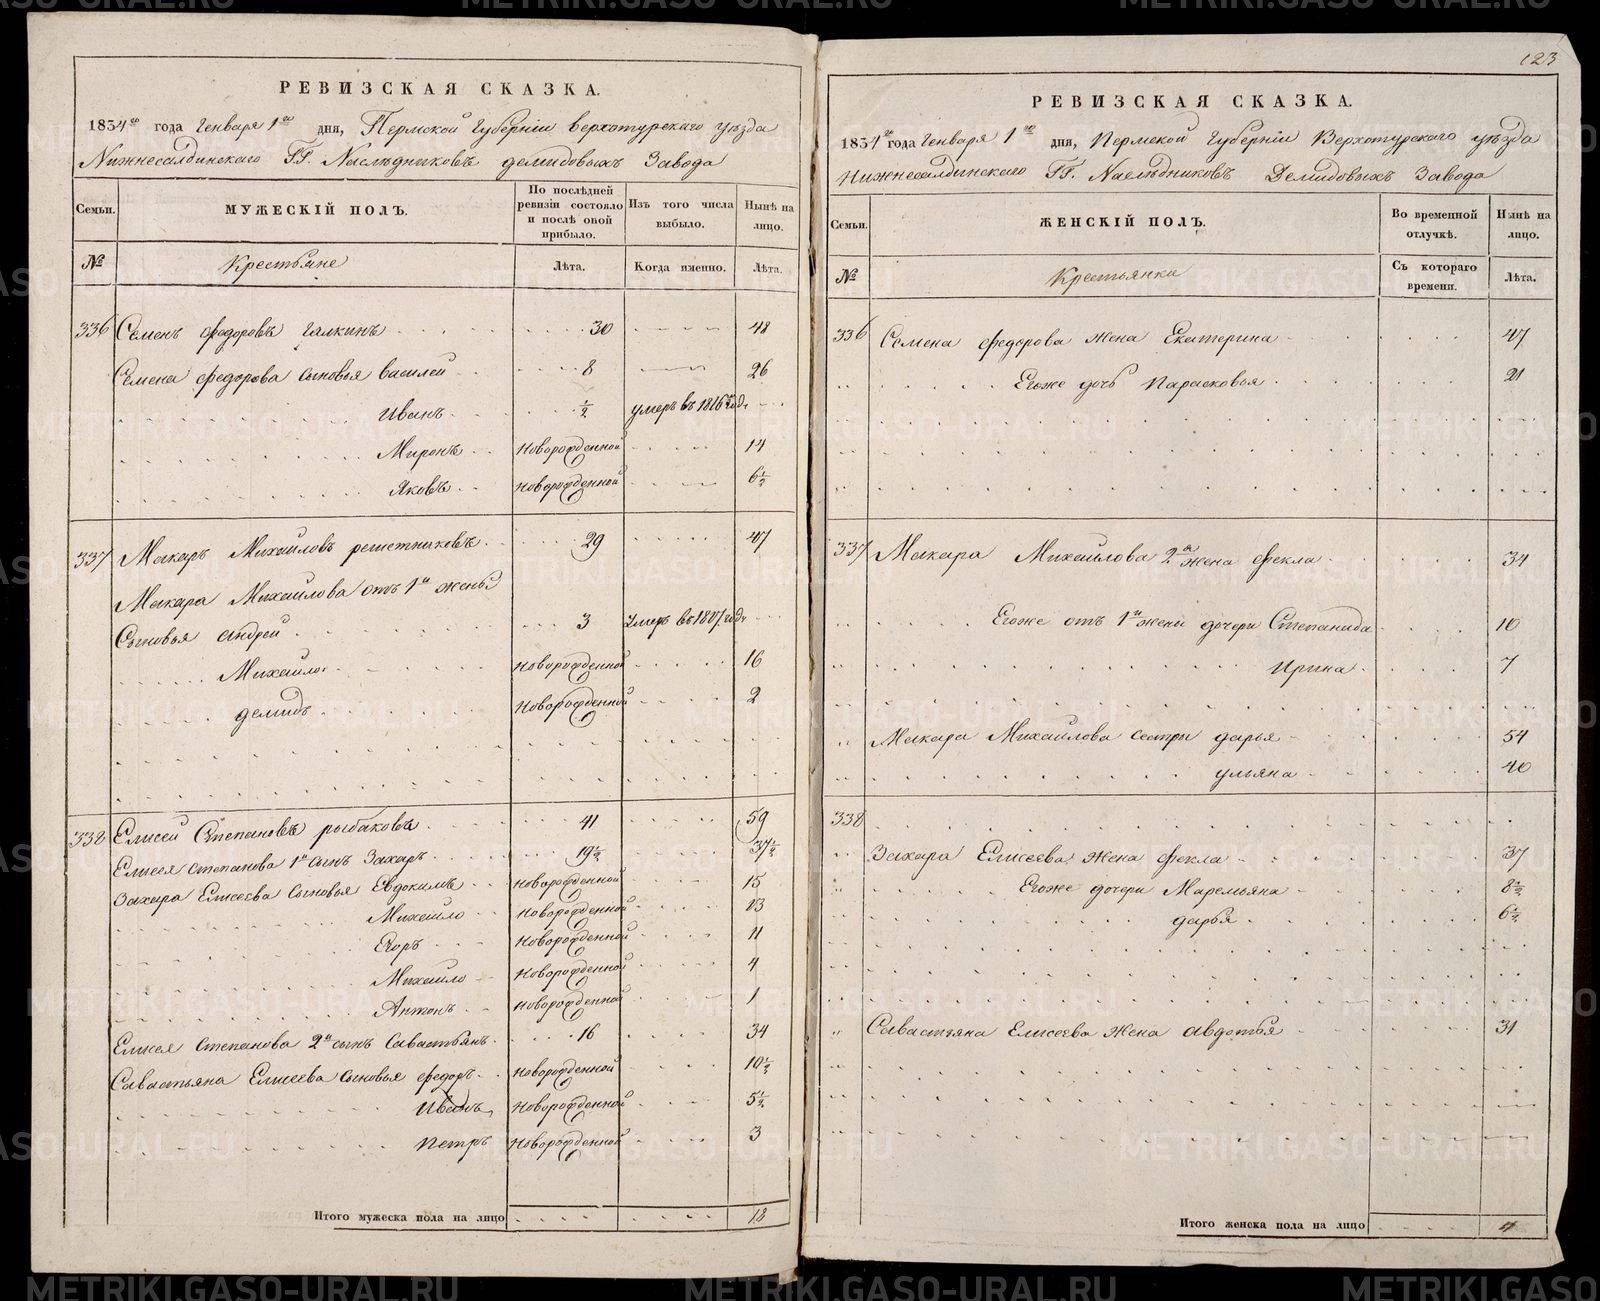 РЕВИЗСКАЯ СКАЗКА.
1834го года Генваря 1го дня, Пермской Губернiи верхотурскаго уѣзда
Нижнесалдинскаго ГГ. Наслѣдниковъ демидовыхъ Завода
Семьи.
МУЖЕСКIЙ ПОЛЪ.
По послѣдней ревизiи состояло и послѣ оной прибыло.
Изъ того числа выбыло.
Нынѣ на лицо.
№
Крестьяне
Лѣта.
Когда именно.
Лѣта.
336 Семенъ федоровъ галкинъ 30 48
Семена федорова сыновья василей 8 26
Иванъ 1/2 умеръ въ 1816 годѣ
Миронъ Новорожденной 14
Яковъ Новорожденной 6 1/2
337 Макаръ Михайловъ решетниковъ 29 47
Макара Михайлова отъ 1й жены
Сыновья андрей 3 Умеръ въ 1817 годѣ
Михайло Новорожденной 16
демидъ Новорожденной 2
338 Елисей Степановъ рыбаковъ 41 59
Елисея степанова 1й сынъ Захаръ 19 1/2 37 1/2
Захара Елисеева Сыновья Евдокимъ Новорожденной 15
Михайло Новорожденной 13
Егоръ Новорожденной 11
Михайло Новорожденной 4
Антонъ Новорожденной 1
Елисея степанова 2й сынъ Савастьянъ 16 34
Савастьяна Елисеева сыновья федоръ Новорожденной 10 1/2
Иванъ Новорожденной 5 1/2
Петръ Новорожденной 3
Итого мужеска пола на лицо 18
123
РЕВИЗСКАЯ СКАЗКА.
1834го года Генваря 1го дня, Пермской Губернiи Верхотурскаго уѣзда
Нижнесалдинскаго ГГ. Наслѣдниковъ Демидовыхъ Завода
Семьи.
ЖЕНСКIЙ ПОЛЪ.
Во временной отлучкѣ.
Нынѣ на лицо.
№
Крестьянки
Съ котораго времени.
Лѣта.
336 Семена федорова жена Екатерина 47
Егоже дочь Парасковья 21
337 Макара Михайлова 2я жена фекла 34
Егоже отъ 1й жены дочери Степанида 10
Ирина 7
Макара Михайлова сестры дарья 54
ульяна 40
338
Захара Елисеева жена фекла 37
Егоже дочери Маремьяна 8 1/2
дарья 6 1/2
Савастьяна Елисеева жена авдотья 31
Итого женска пола на лицо
METRIKI.GASO-URAL.RU